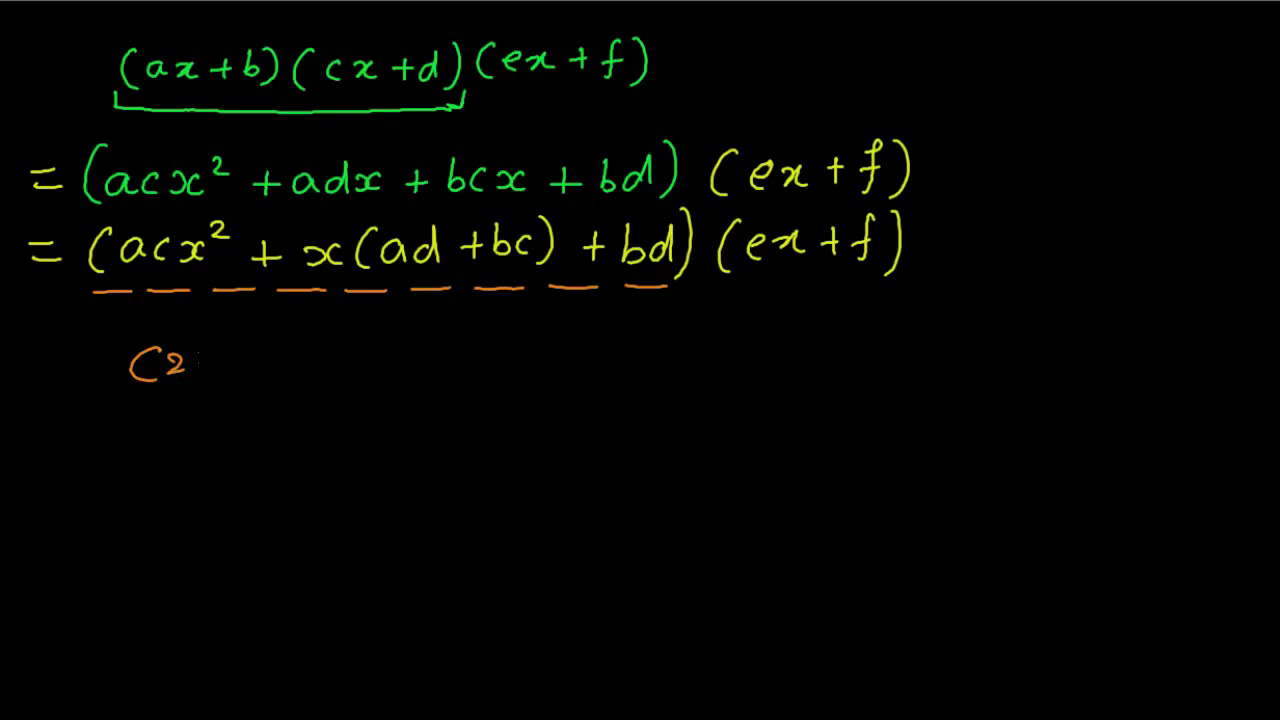 (ax+b)(cx+d)(ex+f)
= (acx² + adx + bcx + bd) (ex + f)
= (acx² + x(ad + bc) + bd) (ex + f)
(2